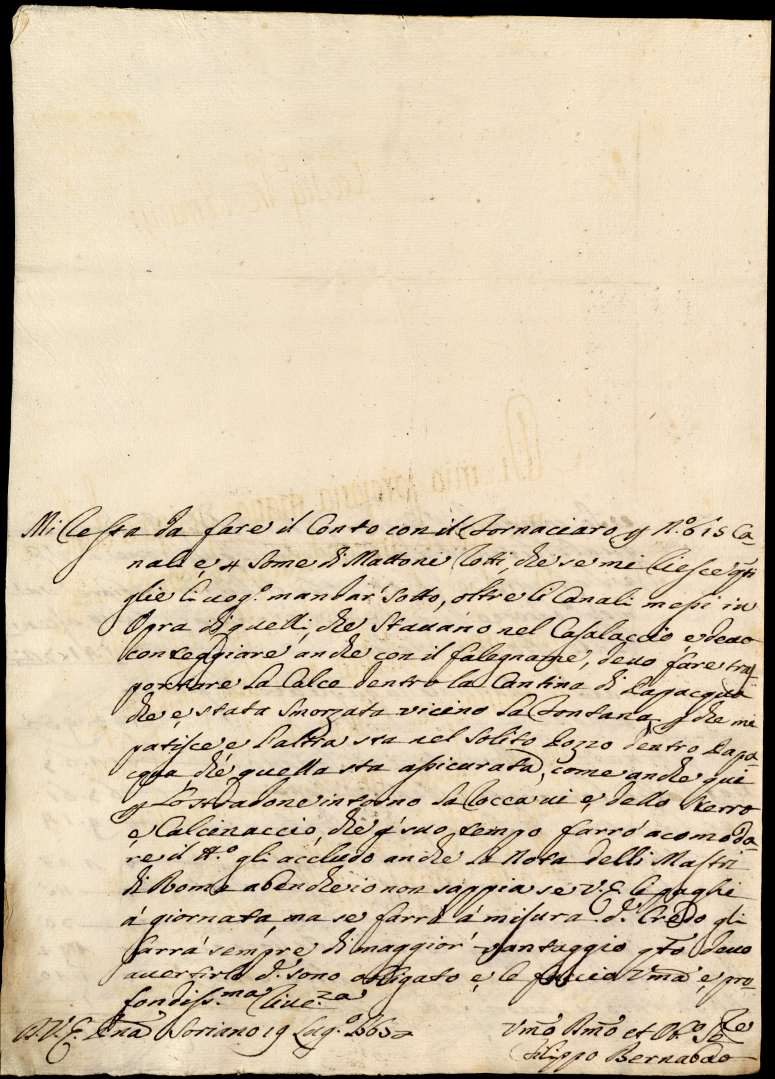 Mi resta da fare il Conto con il fornaciaro p N.º 615 Ca-
nali e 4 some di Mattoni rotti, che se mi riesce q.ti
glie li vog.º mandar' sotto, oltre li Canali messi in
opra di quelli, che stavano nel Casalaccio e devo
conteggiare anche con il falegname, devo fare tra-
portare la Calce dentro la Cantina di Papacqua
che è stata smorzata vicino la fontana, p che mi
patisce e l'altra sta nel solito Pozzo dentro Papa-
qua che quella sta assicurata, come anche qui
p lo stradone intorno la Rocca vi è dello sterro
e Calcinaccio, che p suo tempo farrò acomoda-
re il gli accludo anche la Nota delli Mastri
di Roma abenche io non sappia se V. E. li paghi
à giornata, ma se farrà à misura Credo gli
sarrà sempre di maggior' vantaggio devo
avertirla sono obligato, e le faccio Vma e pro-
fondiss.ma river.za
D. V. E. Soriano 19 Lug.º
Vmo Dmo et Ob.º
Filippo Bernabo